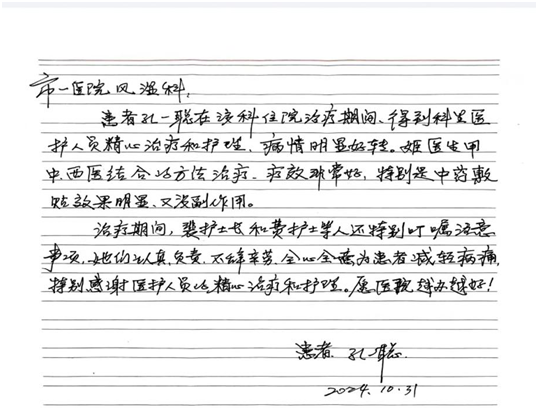 市一医院风湿科:
患者孔一聪在该科住院治疗期间、得到科里医
护人员精心治疗和护理、病情明显好转。姬医生用
中、西医结合的方法治疗、疗效非常好,特别是中药敷
贴效果明显、又没副作用。
治疗期间,裴护士长和黄护士等人还特别叮嘱注意
事项、她们认真、负责、不辞辛劳、全心全意为患者减轻病痛
特别感谢医护人员的精心治疗和护理。愿医院越办越好!
患者、孔一聪
2024.10.31